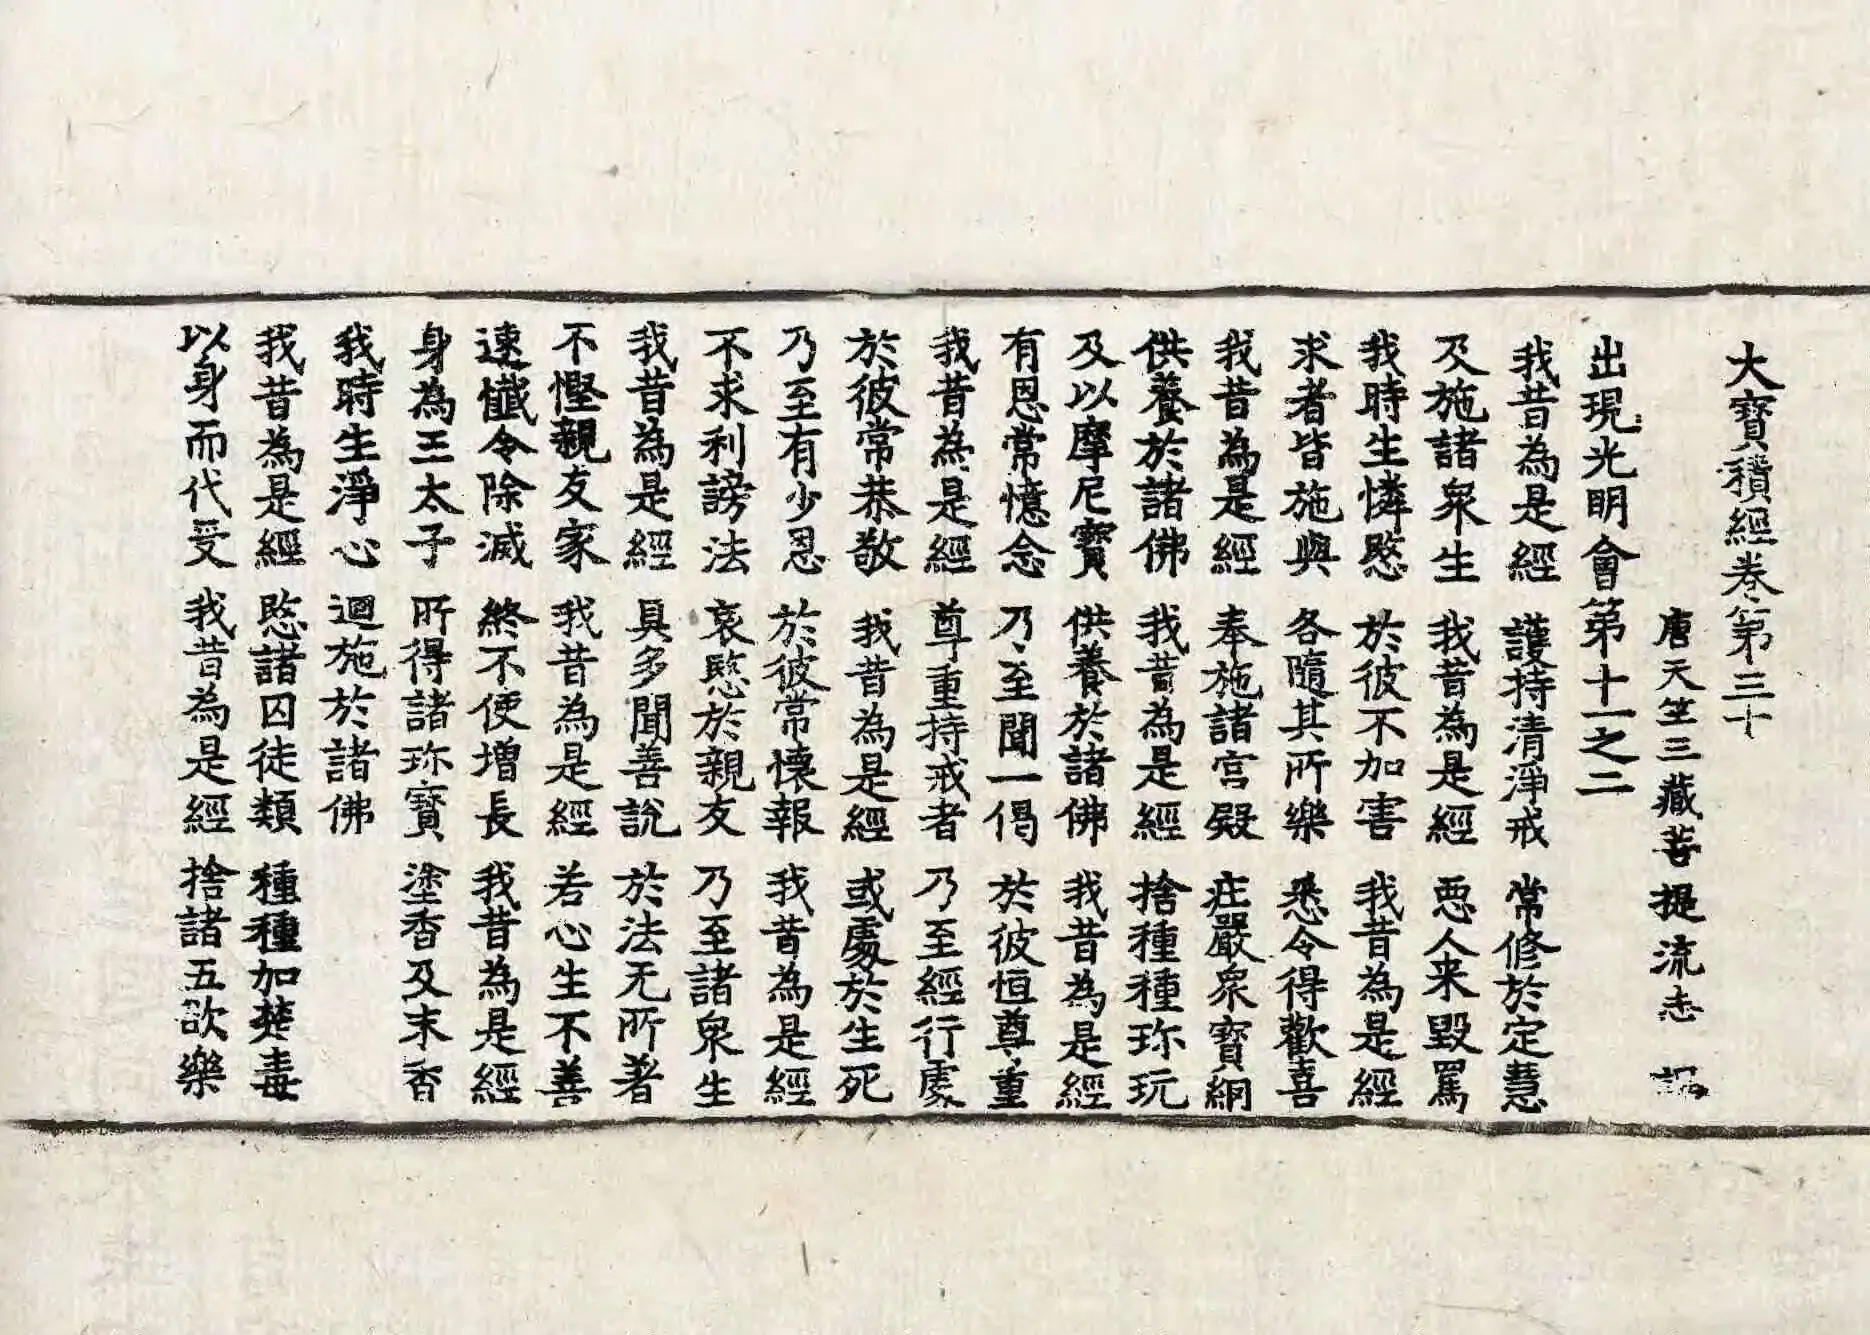 大寶積經卷第三十
唐天竺三藏菩提流志
出現光明會第十一之二
我昔為是經 護持清淨戒 常修於定慧
及施諸衆生 我昔為是經 惡人来毀罵
我時生憐愍 於彼不加害 我昔為是經
求者皆施與 各隨其所樂 悉令得歡喜
我昔為是經 奉施諸宮殿 庄嚴衆寶網
供養於諸佛 我昔為是經 捨種種珎玩
及以摩尼寶 供養於諸佛 我昔為是經
有恩常憶念 乃至聞一偈 於彼恒尊重
我昔為是經 尊重持戒者 乃至經行處
於彼常恭敬 我昔為是經 或處於生死
乃至有少恩 於彼常懷報 我昔為是經
不求利謗法 哀愍於親友 乃至諸衆生
我昔為是經 具多聞善說 於法无所著
不慳親友家 我昔為是經 若心生不善
速懺令除滅 終不使增長 我昔為是經
身為王太子 所得諸珎寶 塗香及末香
我時生淨心 迴施於諸佛
我昔為是經 愍諸囚徒類 種種加楚毒
以身而代受 我昔為是經 捨諸五欲樂